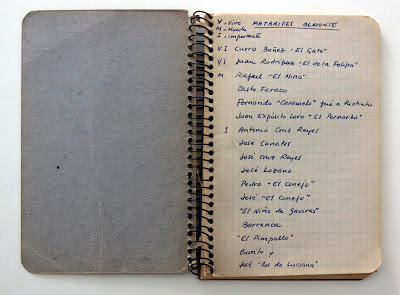 V = Vivo MATARIFES ALMONTE
M = Muerto
I = Importante
V I Curro Báñez "El Gato"
V I Juan Rodríguez "El de la Felipa"
M Rafael "El Nino"
Casto Faraco
Fernando "Caramelo" que a
Juan Expósito Lara "El Pernarbo"
I Antonio Cruz Reyes
José Canales
José Cruz Reyes
José Lozano
Pedro "El Conejo"
José "El Conejo"
"El Niño de Gaviras"
Barranca
"El Pimpollo"
Currito y
José "los de Luciana"